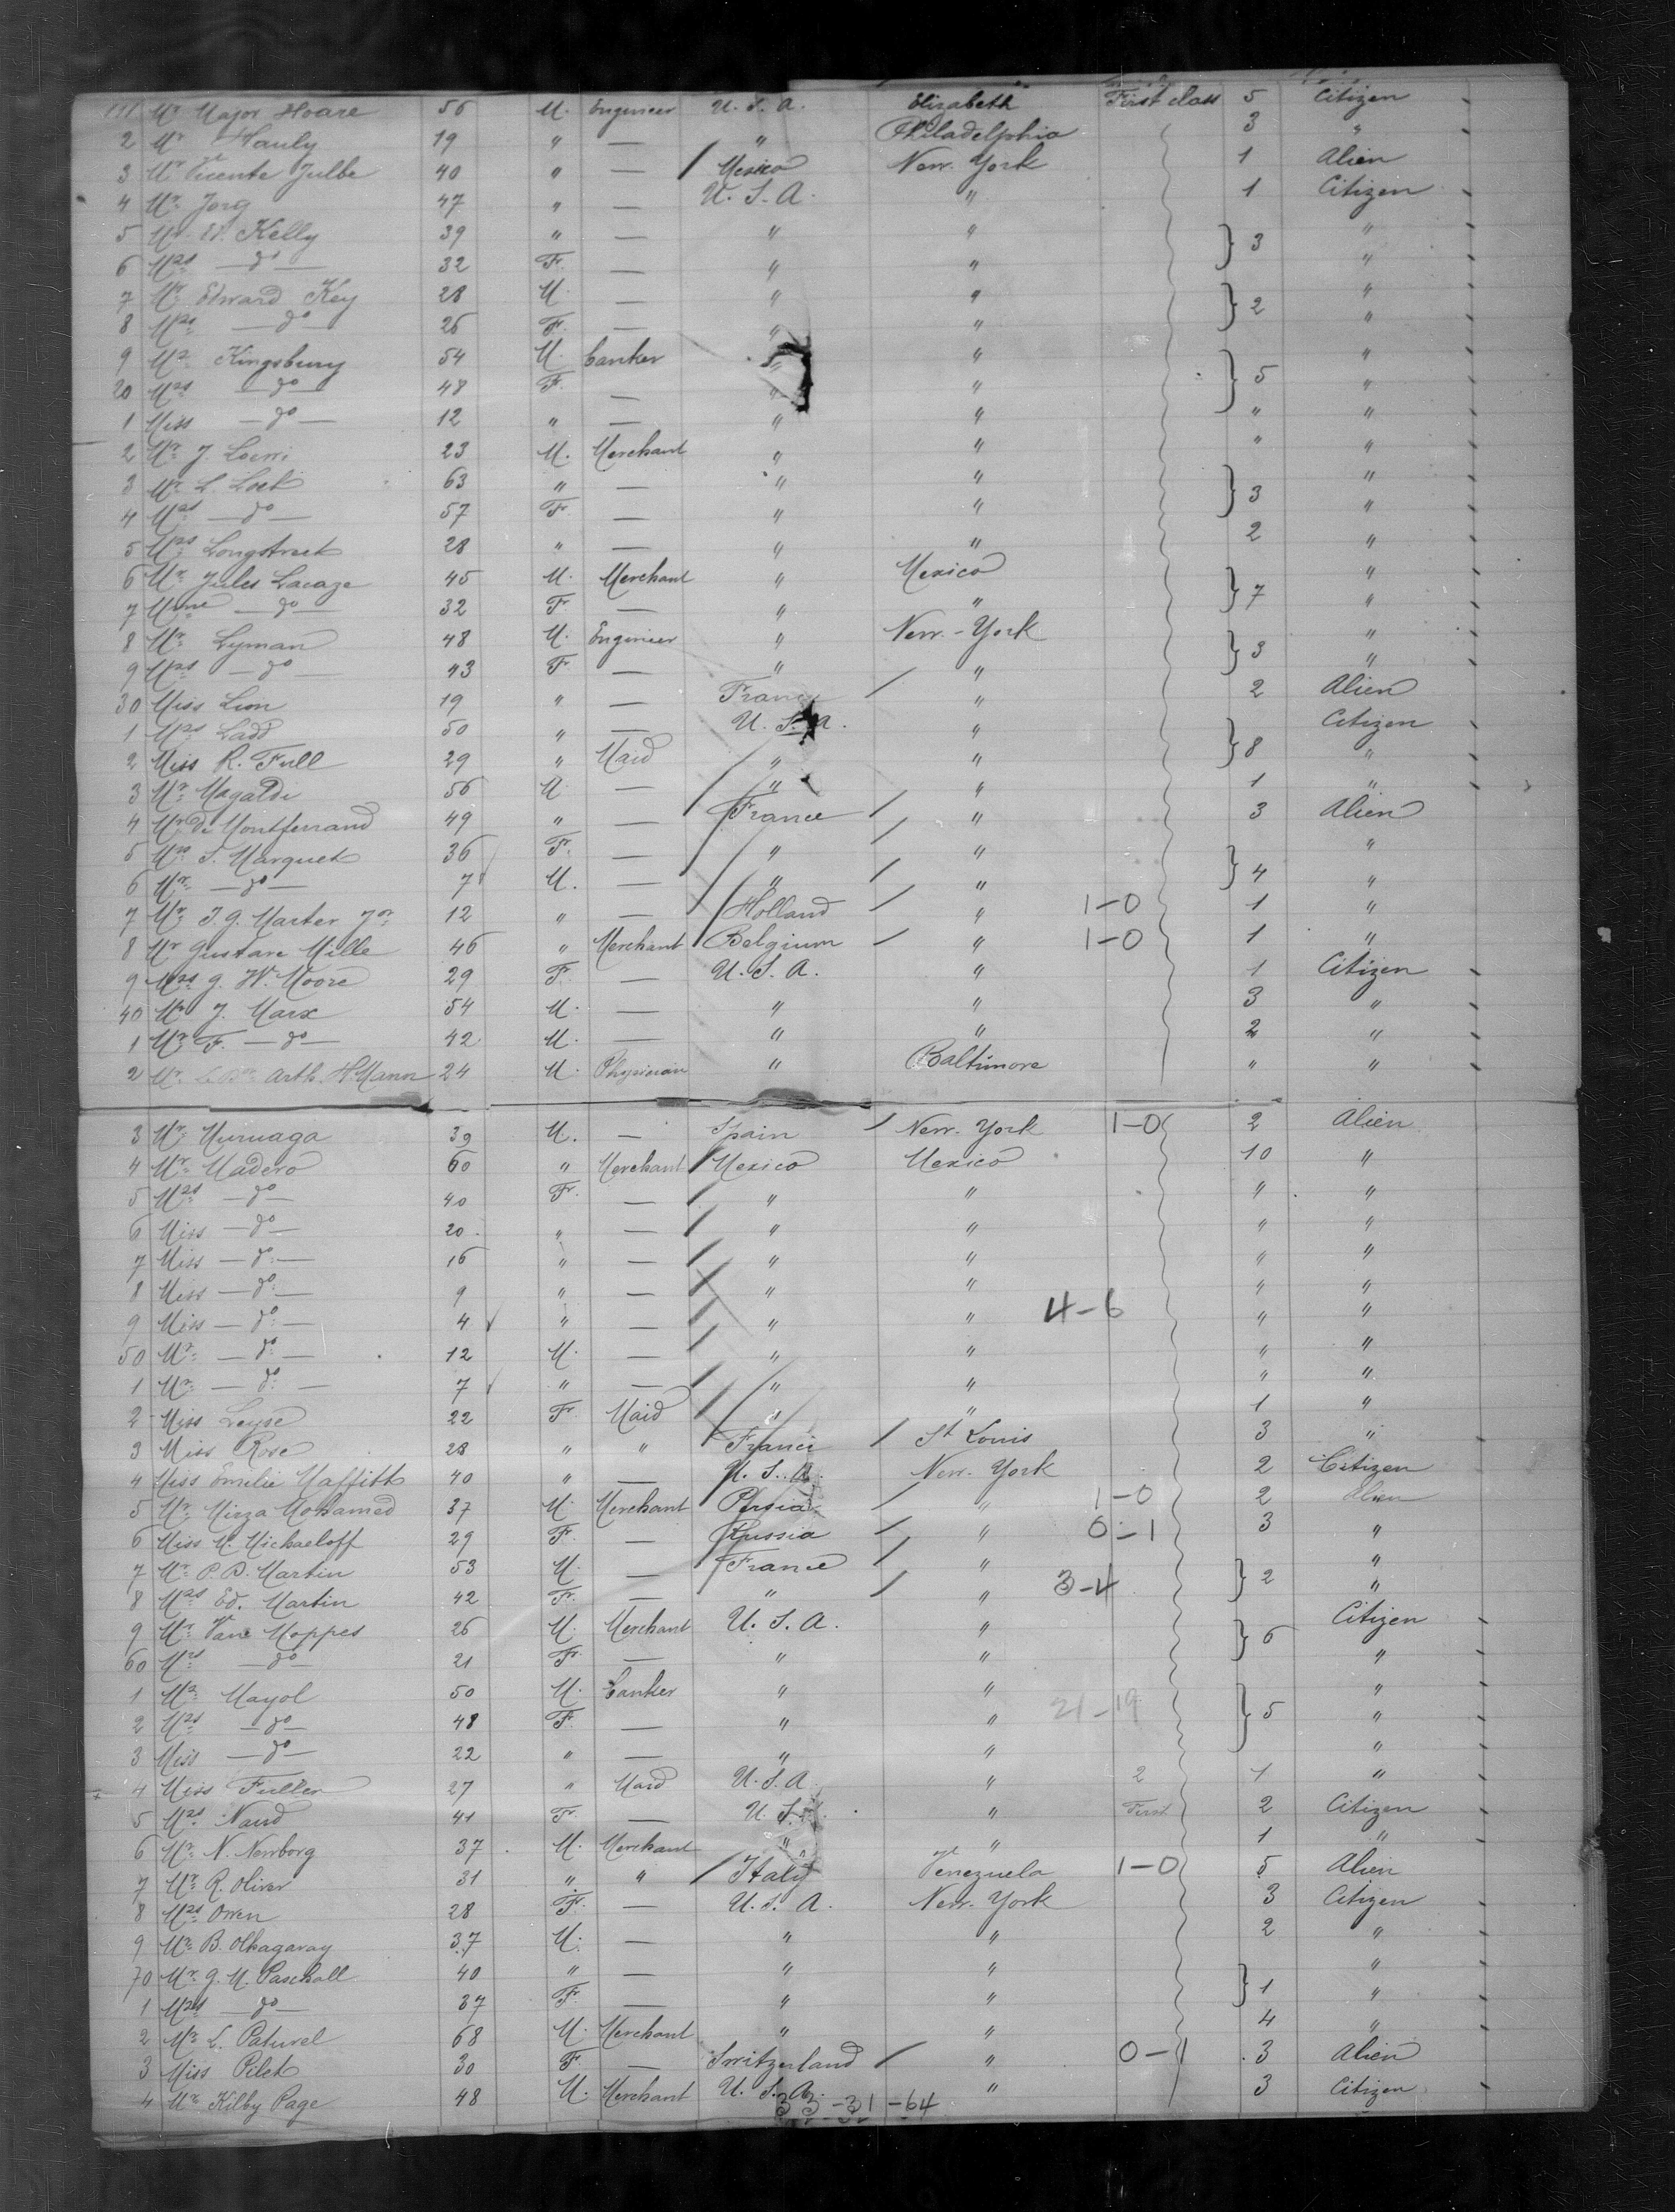 111 Mr Major Hoare 56 M. Engineer U. S. A. Elizabeth First class 5 Citizen
2 Mr Hauly 19 " — " Philadelphia 3 "
3 Mr Vicente Julbe 40 " — Mexico New. York 1 Alien
4 Mr Jorg 47 " — U. S. A. " 1 Citizen
5 Mr Kelly 39 " — " " } 3 "
6 Mrs — do — 32 F. — " " "
7 Mr Edward Key 28 M. — " " } 2 "
8 Mrs — do — 26 F. — " " "
9 Mr Kingsbury 54 M. banker " " } 5 "
20 Mrs — do — 48 F. — " " "
1 Miss — do — 12 " — " " " "
2 Mr J. Loewi 23 M. Merchant " " " "
3 Mr L. Loeb 63 " — " " } 3 "
4 Mrs — do — 57 F. — " " "
5 Mrs Longstreet 28 " — " " 2 "
6 Mr Jules Lacaze 45 M. Merchant " Mexico } 7 "
7 Mme — do — 32 F. — " " "
8 Mr Lyman 48 M. Engineer " New-York } 3 "
9 Mrs — do — 43 F. — " " "
30 Miss Lion 19 " — France " 2 Alien
1 Mrs Ladd 50 " — U. S. A. " Citizen
2 Miss R. Full 29 " Maid " " } 8 "
3 Mr Magaldi 56 M — " " 1 "
4 Mr De Montferrand 49 " — France " 3 Alien
5 Mrs S. Marquet 36 F. — " " } 4 "
6 Mr — do — 7 M. — " " "
7 Mr T. G. Marter Jor 12 " — Holland " 1-0 1 "
8 Mr Gustave Mille 46 " Merchant Belgium " 1-0 1 "
9 Mrs G. W. Moore 29 F. — U. S. A. " 1 Citizen
40 Mr J. Marx 54 M. — " " 3 "
1 Mr F. — do — 42 M. — " " 2 "
2 Mr Arth. H. Mann 24 M. Physician " Baltimore " "
3 Mr Muruaga 39 M. — Spain New. York 1-0 2 Alien
4 Mr Madero 60 " Merchant Mexico Mexico 10 "
5 Mrs — do — 40 F. — " " " "
6 Miss — do — 20 " — " " " "
7 Miss — do — 16 " — " " " "
8 Miss — do — 9 " — " " " "
9 Miss — do — 4 " — " " 4-6 " "
50 Mr — do — 12 M. — " " " "
1 Mr — do — 7 " — " " " "
2 Miss Leyse 22 F. Maid " " 1 "
3 Miss Rose 28 " " France St Louis 3 "
4 Miss Emilie Maffitt 40 " — U. S. A. New. York 2 Citizen
5 Mr Mirza Mohamed 37 M. Merchant Persia " 1-0 2 Alien
6 Miss M. Michaeloff 29 F. — Russia " 0-1 3 "
7 Mr P. D. Martin 53 M. — France " } 2 "
8 Mrs Ed. Martin 42 F. — " " 3-4 "
9 Mr Van Moppes 26 M. Merchant U. S. A. " } 6 Citizen
60 Mrs — do — 21 F. — " " "
1 Mr Mayol 50 M. banker " " } 5 "
2 Mrs — do — 48 F. — " " 21-19 "
3 Miss — do — 22 " — " " "
4 Miss Fuller 27 " Maid U. S. A. " 2 1 "
5 Mrs Naud 41 F. — U. S. A. " First 2 Citizen
6 Mr N. Newborg 37 M. Merchant " " 1 "
7 Mr R. Oliver 31 " " Italy Venezuela 1-0 5 Alien
8 Mrs Owen 28 F. — U. S. A. New. York 3 Citizen
9 Mr B. Olhagaray 37 M. — " " 2 "
70 Mr G. M. Paschall 40 " — " " } 1 "
1 Mrs — do — 37 F. — " " "
2 Mr L. Paturel 68 M. Merchant " " 4 "
3 Miss Pilet 30 F. — Switzerland " 0-1 3 Alien
4 Mr Kilby Page 48 M. Merchant U. S. A. " 3 Citizen
33-31-64